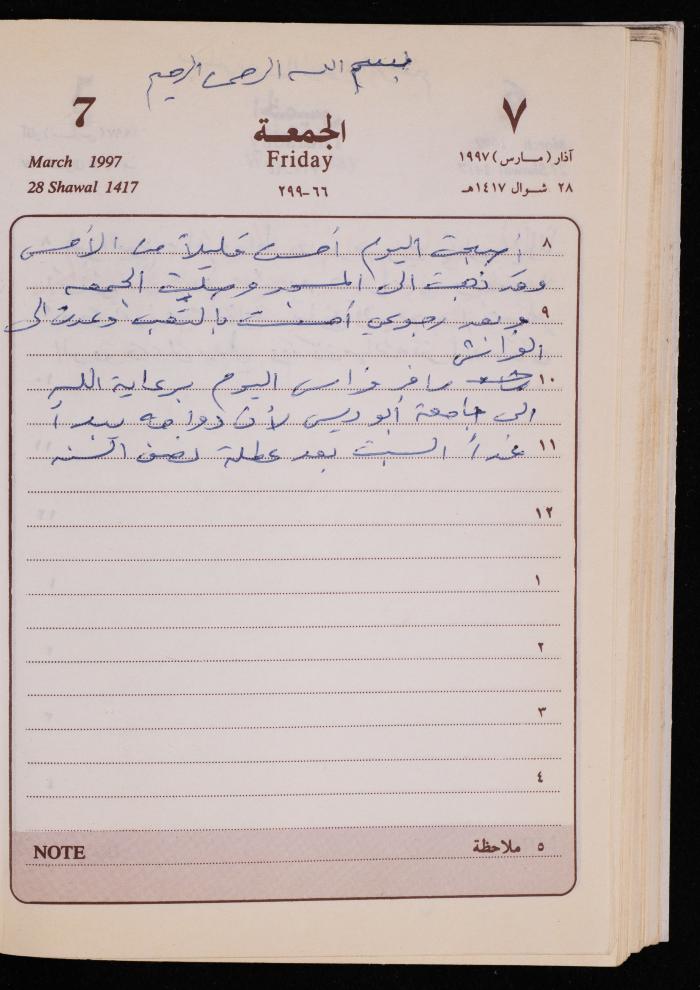 بسم الله الرحمن الرحيم
7
٧
الجمعة
Friday
March 1997
آذار (مارس) ١٩٩٧
28 Shawal 1417
٢٨ شوال ١٤١٧هـ
٦٦-٢٩٩
٨ أصبحت اليوم احسن قليلاً من الأمس
وقد ذهبت الى المسجد وصليت الجمعه
٩ وبعد رجوعي أحسست بالتعب وعدت الى
الفراش
١٠ سافر فراس اليوم برعاية الله
الى جامعة أبو ديس لأن دوامه يبدأ
١١ غداً السبت بعد عطلة نصف السنه
١٢
١
٢
٣
٤
NOTE
٥ ملاحظة